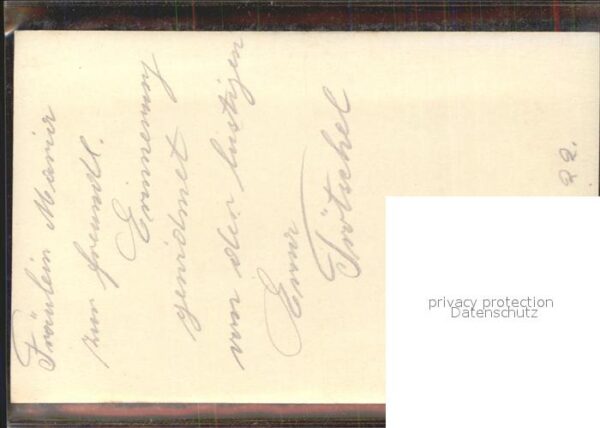 Fräulein Maria
zur freundl.
Erinnerung
gewidmet
von der lustigen
Erna
Trötschel
22.
privacy protection
Datenschutz